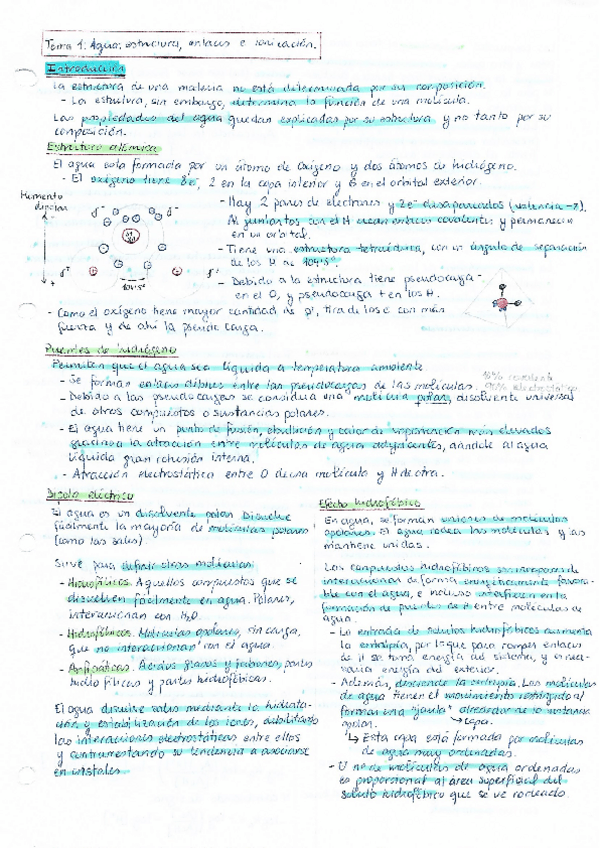 Tema 1: Agua: estructura, enlaces e ionización.
Introducción
La estructura de una materia no está determinada por su composición.
- La estructura, sin embargo, determina la función de una molécula.
Las propiedades del agua quedan explicadas por su estructura y no tanto por su
composición.
Estructura atómica
El agua está formada por un átomo de oxígeno y dos átomos de hidrógeno.
- El oxígeno tiene 8e⁻, 2 en la capa interior y 6 en el orbital exterior.
Momento
dipolar
- Hay 2 pares de electrones y 2e⁻ desapareados (valencia -2).
Al juntarlos con el H crean enlaces covalentes y permanecen
en un orbital.
- Tiene una estructura tetraédrica, con un ángulo de separación
de los H de 104'5°.
104'5°
- Debido a la estructura tiene pseudocarga -
en el O, y pseudocarga + en los H.
- Como el oxígeno tiene mayor cantidad de p⁺, tira de los e⁻ con más
fuerza y de ahí la pseudocarga.
Puentes de hidrógeno
Permiten que el agua sea líquida a temperatura ambiente
- Se forman enlaces débiles entre las pseudocargas de las moléculas.
10% covalente
90% electrostático
- Debido a las pseudocargas se considera una molécula polar, disolvente universal
de otros compuestos o sustancias polares.
- El agua tiene un punto de fusión, ebullición y calor de vaporización más elevados
gracias a la atracción entre moléculas de agua adyacentes, dándole al agua
líquida gran cohesión interna.
- Atracción electrostática entre O de una molécula y H de otra.
Dipolo eléctrico
El agua es un disolvente polar. Disuelve
fácilmente la mayoría de moléculas polares
(como las sales).
Sirve para definir otras moléculas:
- Hidrofílicos: Aquellos compuestos que se
disuelven fácilmente en agua. Polares,
interaccionan con H₂O.
- Hidrofóbicos: Moléculas apolares, sin carga,
que no interaccionan con el agua.
- Anfipáticos: Ácidos grasos y jabones, partes
hidrofílicas y partes hidrofóbicas.
El agua disuelve sales mediante la hidrata-
ción y estabilización de los iones, debilitando
las interacciones electrostáticas entre ellos
y contrarrestando su tendencia a asociarse
en cristales
Efecto hidrofóbico
En agua, se forman uniones de moléculas
apolares. El agua rodea las moléculas y las
mantiene unidas.
Los compuestos hidrofóbicos son incapaces de
interaccionar de forma energéticamente favora-
ble con el agua, e incluso interfieren en la
formación de puentes de H entre moléculas de
agua.
- La entrada de solutos hidrofóbicos aumenta
la entalpía, por lo que para romper enlaces
de H se toma energía del sistema, y
energía del exterior.
- Además, desciende la entropía. Las moléculas
de agua tienen el movimiento restringido al
formar una "jaula" alrededor de la sustancia
apolar.
↳ capa.
↳ Esta capa está formada por moléculas
de agua muy ordenadas.
- El nº de moléculas de agua ordenadas
es proporcional al área superficial del
soluto hidrofóbico que se ve rodeado.